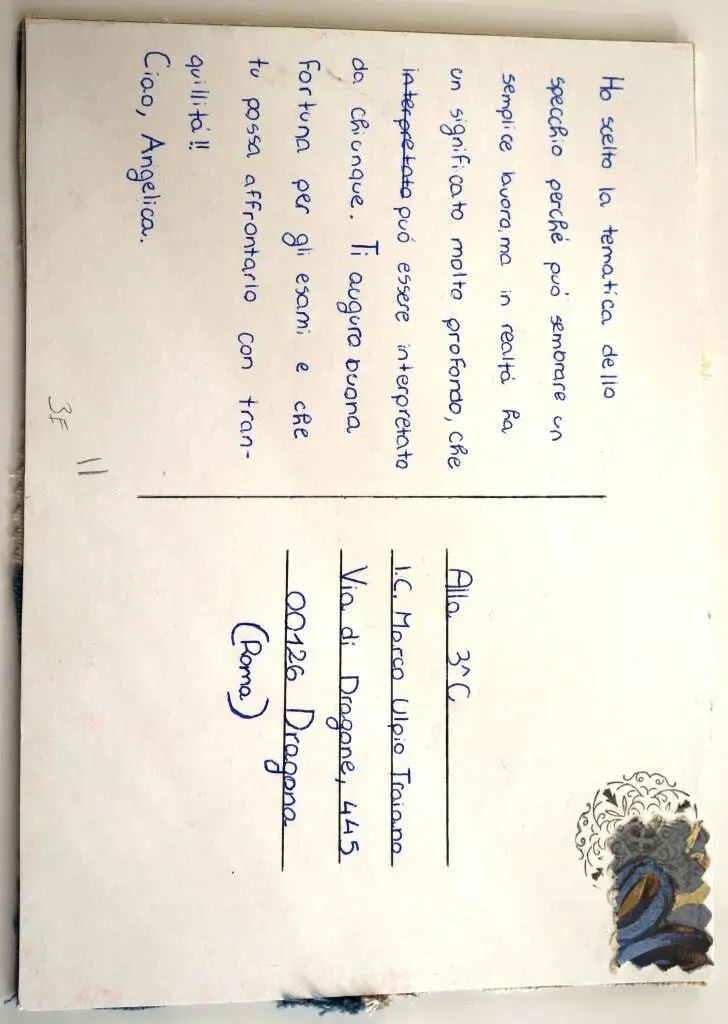 Ho scelto la tematica dello
specchio perché può sembrare un
semplice lavoro, ma in realtà ha
un significato molto profondo, che
interpretato può essere interpretato
da chiunque. Ti auguro buona
fortuna per gli esami e che
tu possa affrontarlo con tran-
quillità!!
Ciao, Angelica.
3F
11
Alla 3^C
I.C. Marco Ulpio Traiano
Via di Dragone, 445
00126 Dragona
(Roma)